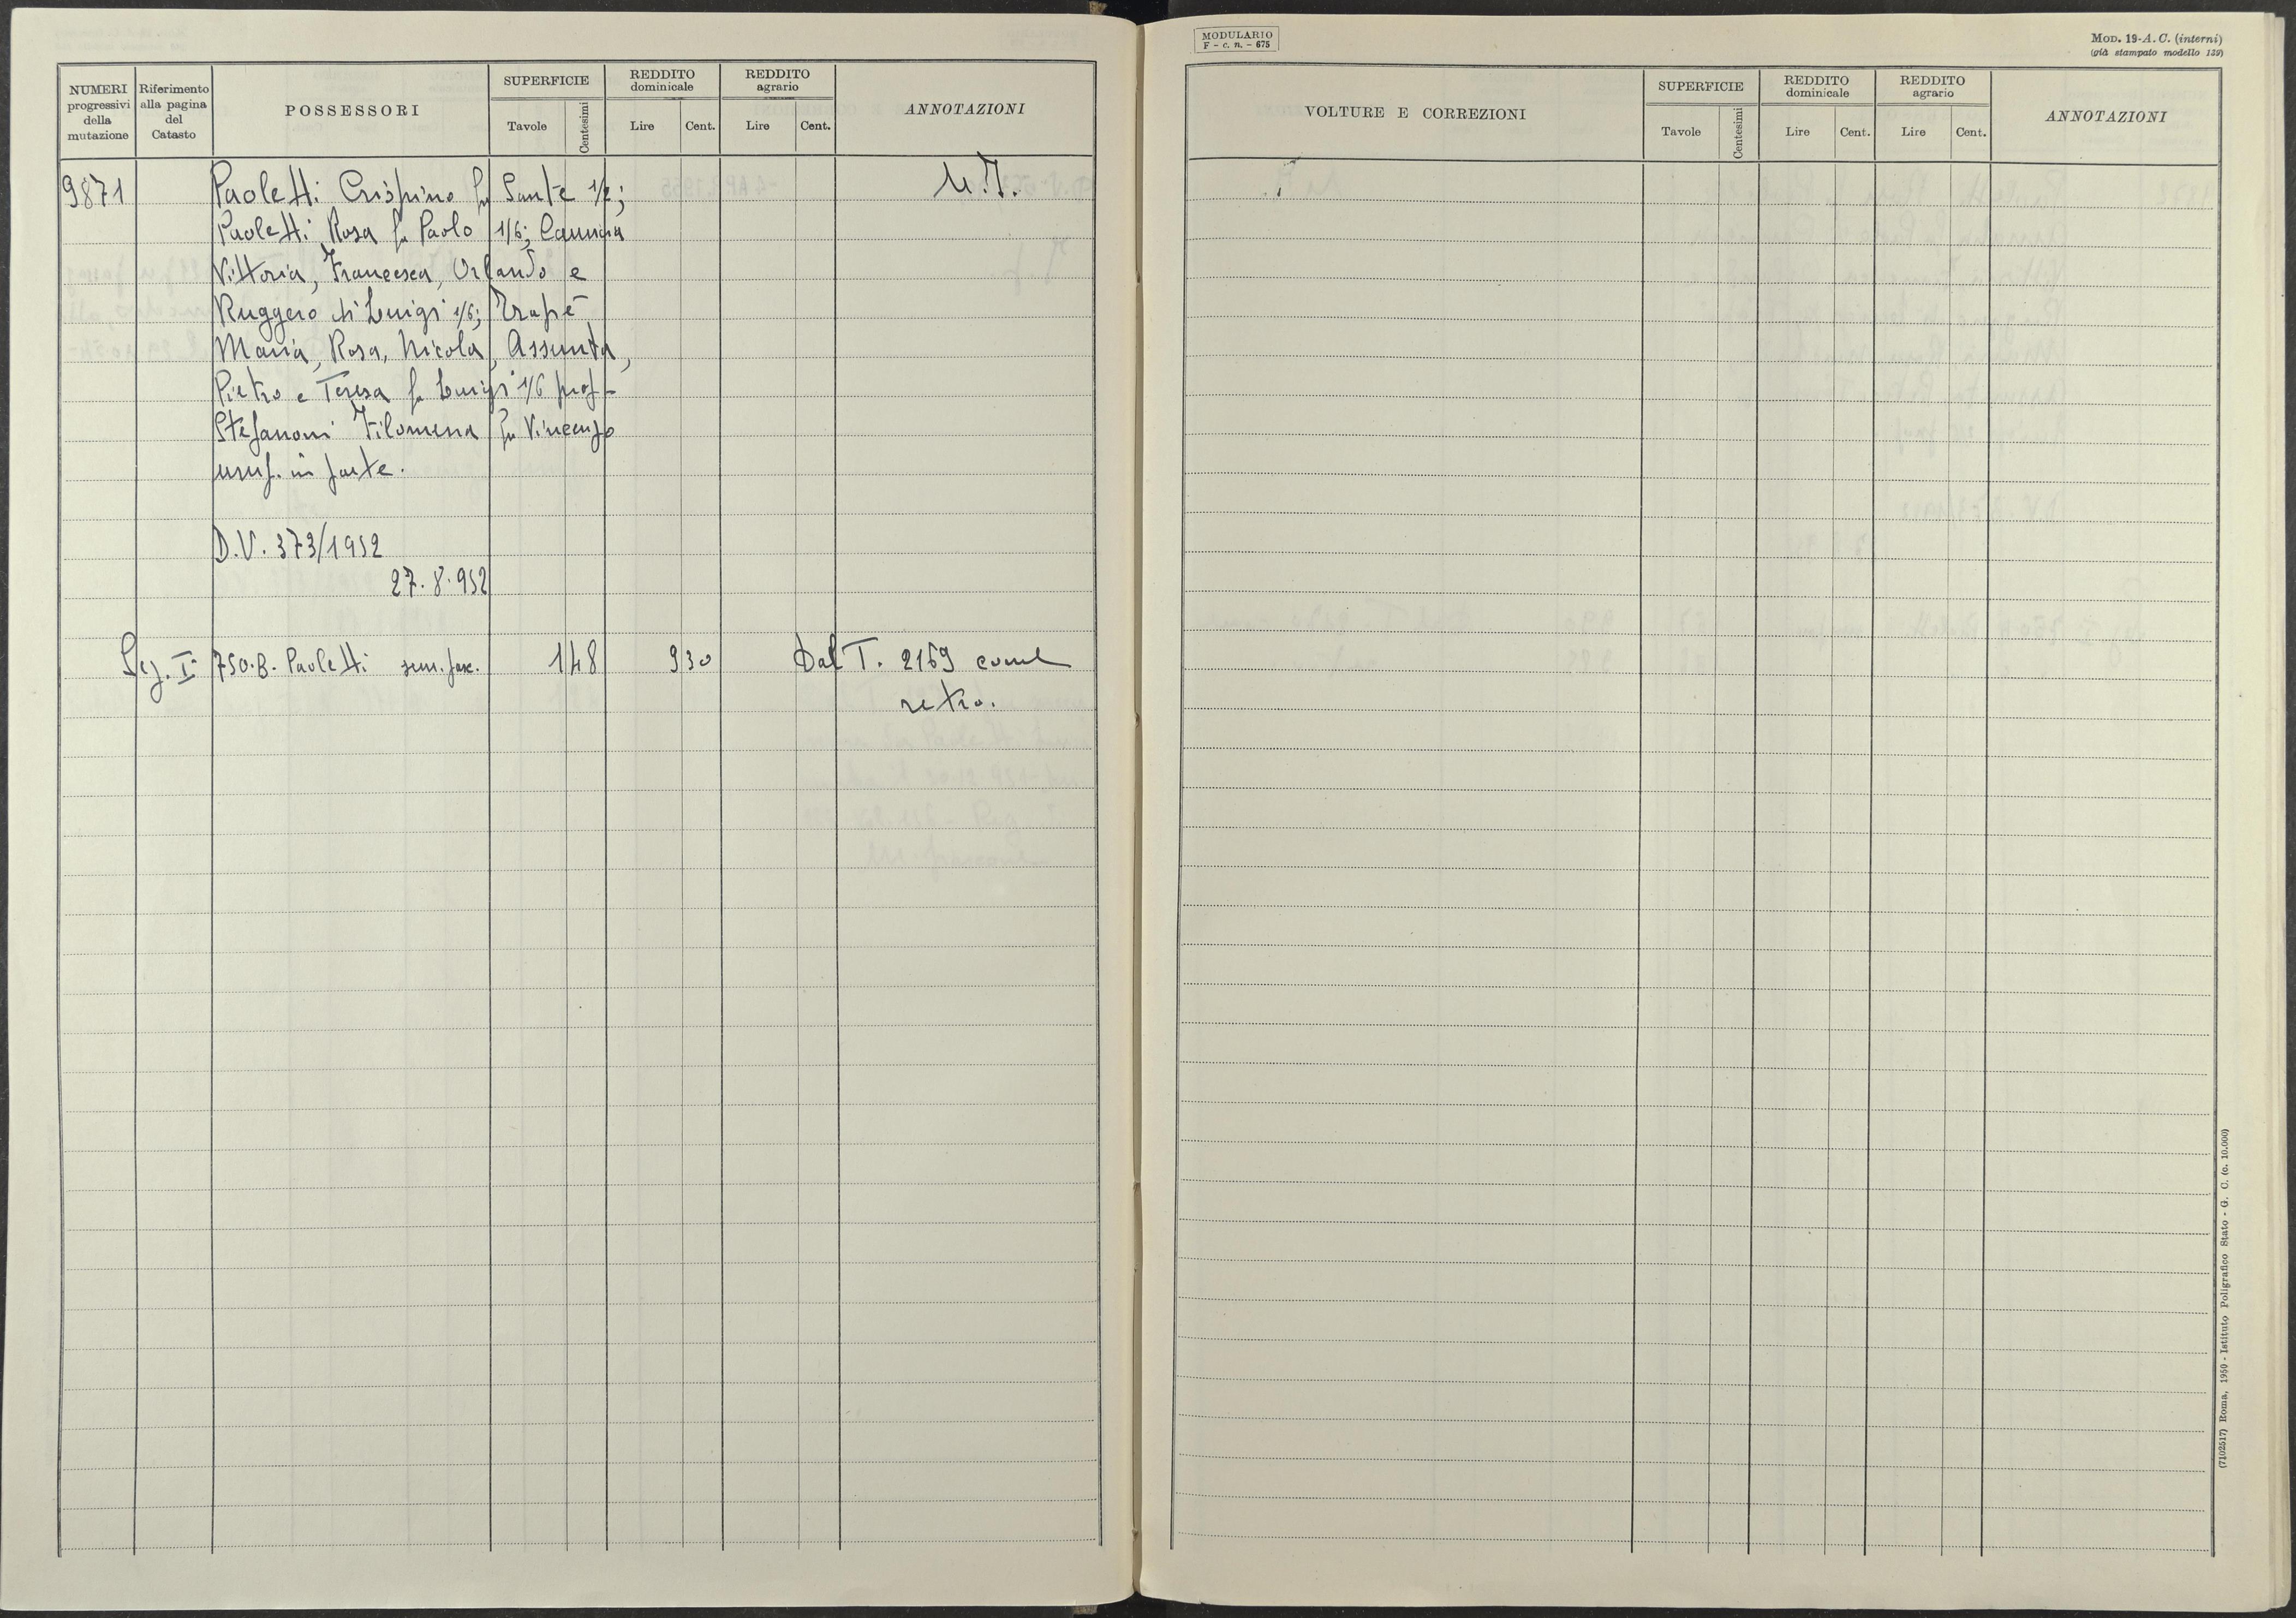 NUMERI progressivi della mutazione
Riferimento alla pagina del Catasto
POSSESSORI
SUPERFICIE
Tavole
Centesimi
REDDITO dominicale
Lire
Cent.
REDDITO agrario
Lire
Cent.
ANNOTAZIONI
9871 Paoletti Crispino fu Sante 1/2; M.T.
Paoletti Rosa fu Paolo 1/6;
Vittoria, Francesca, Orlando e
Ruggero di Luigi 1/6; Trapè
Maria, Rosa, Nicola, Assunta,
Pietro e Teresa fu Luigi 1/6 prop-
Stefanoni Filomena fu Vincenzo
usuf. in parte.
D.V. 373/1952
27.8.952
Sez. I 750.B. Paoletti 1 48 9 30 Dal T. 2169 come
retro.
MODULARIO
F - c. n. - 675
MOD. 19-A. C. (interni)
(già stampato modello 139)
VOLTURE E CORREZIONI
SUPERFICIE
Tavole
Centesimi
REDDITO dominicale
Lire
Cent.
REDDITO agrario
Lire
Cent.
ANNOTAZIONI
(7102517) Roma, 1950 - Istituto Poligrafico Stato - G. C. (c. 10.000)